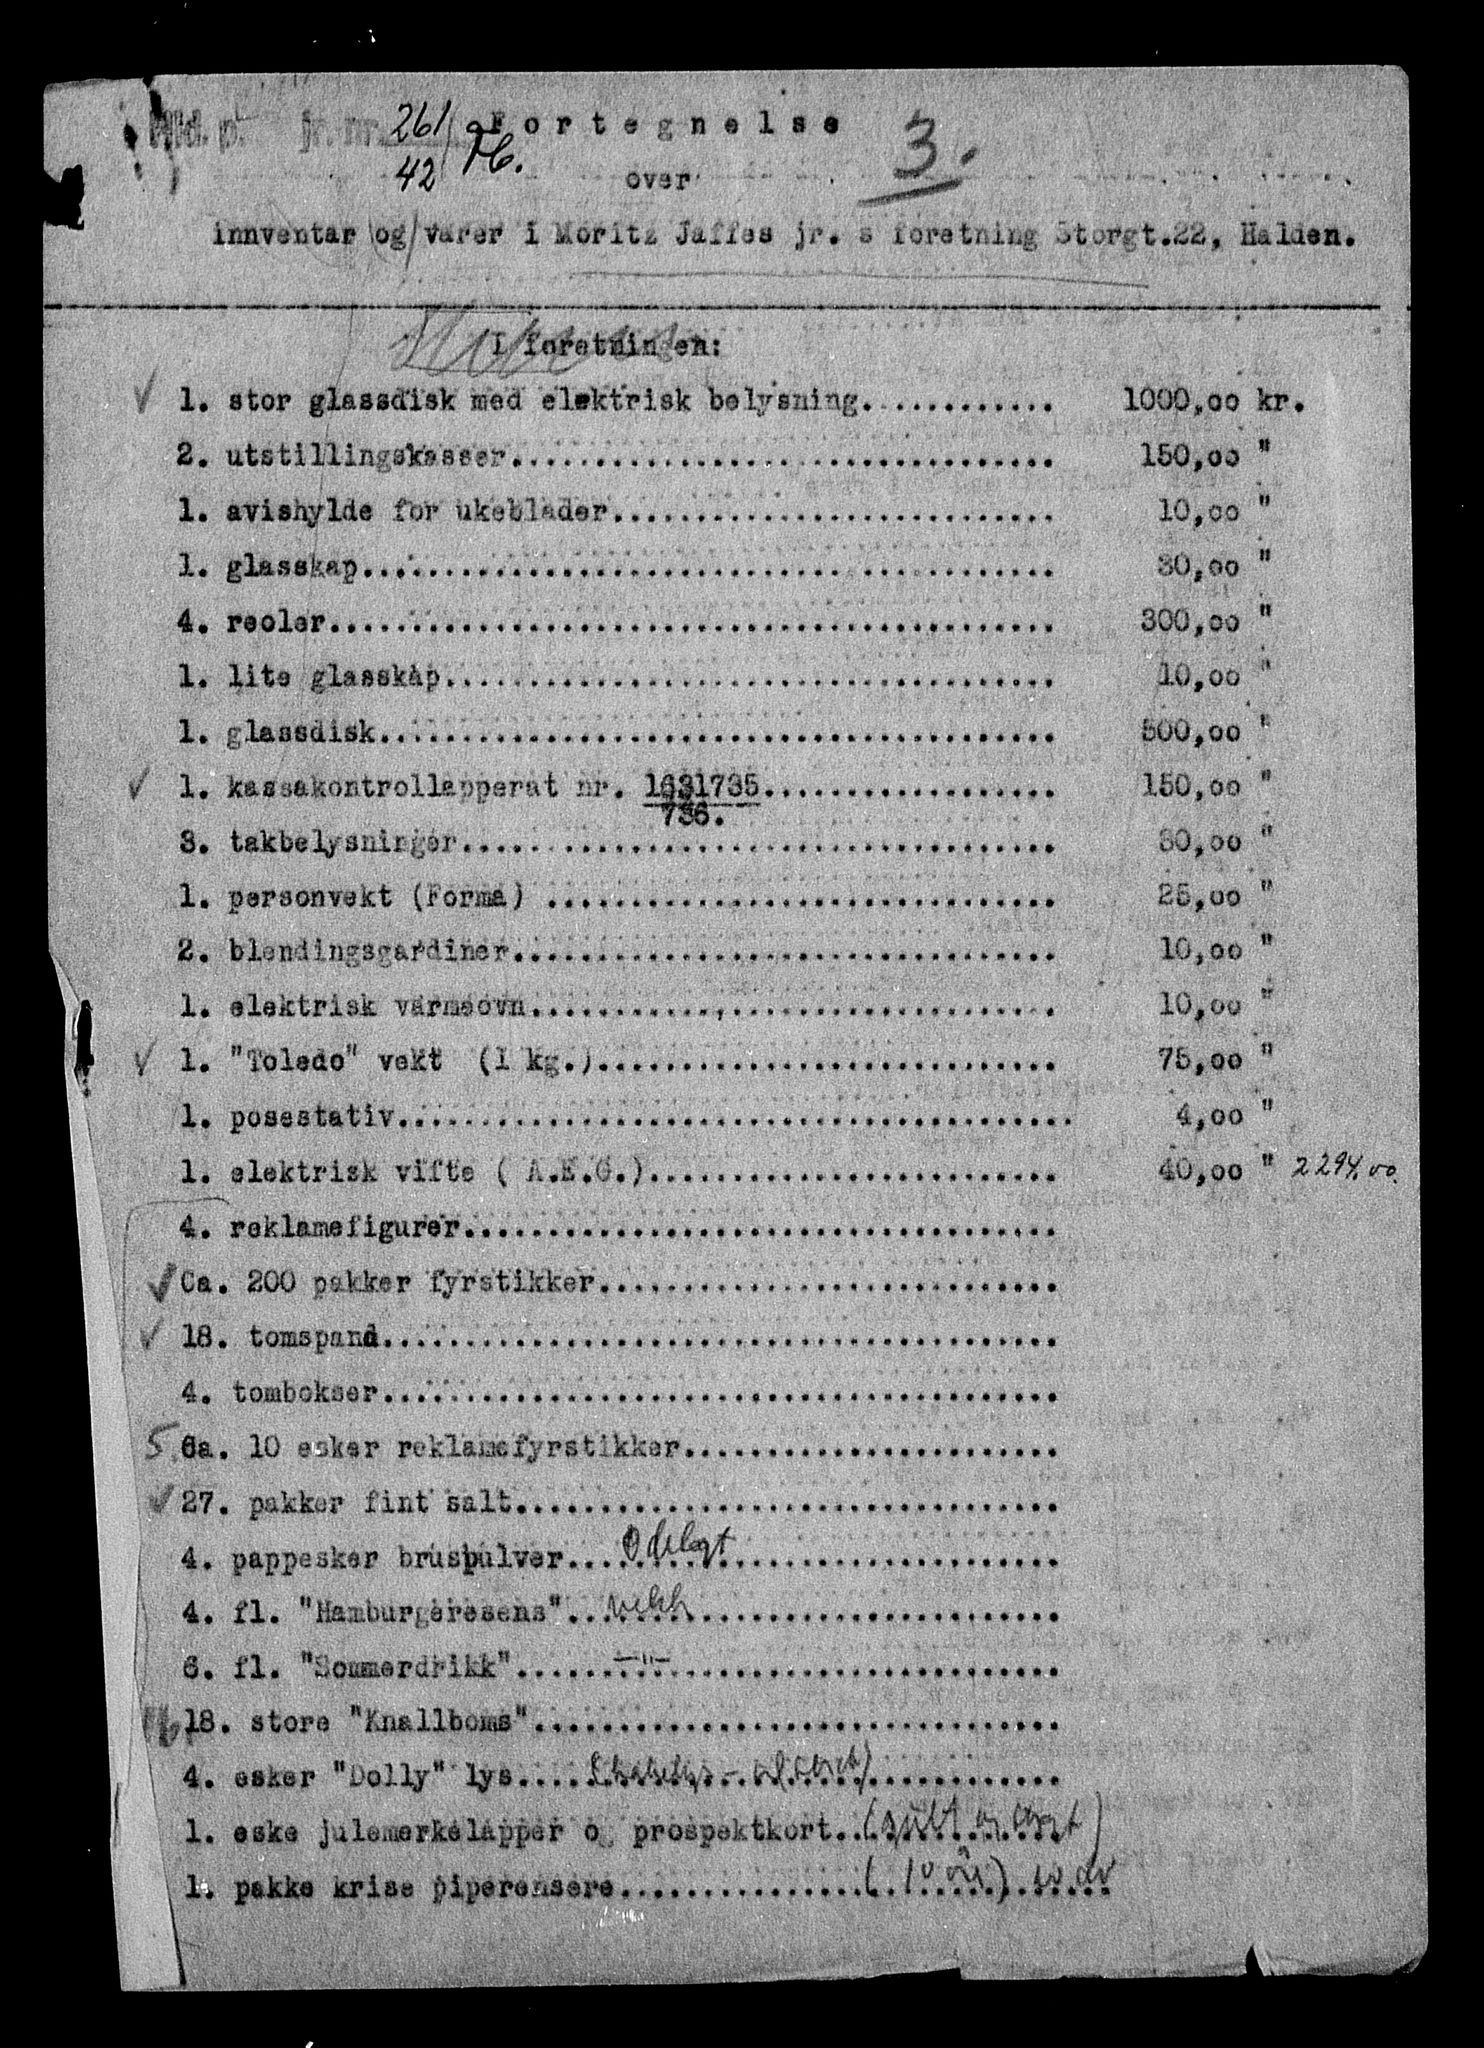 Hld. p. jr. nr. 261/42 Fortegnelse 3.
over
innventar og varer i Moritz Jaffes jr. s foretning Storgt.22, Halden.
I foretningen:
✓ 1. stor glassdisk med elektrisk belysning............ 1000,oo kr.
2. utstillingskasser................................ 150,oo "
1. avishylde for ukeblader.......................... 10,oo "
1. glasskap......................................... 30,oo "
4. reoler........................................... 300,oo "
1. lite glasskap.................................... 10,oo "
1. glassdisk........................................ 500,oo "
✓ 1. kassakontrollapperat nr. 1631735.................. 150,oo "
736.
3. takbelysninger................................... 30,oo "
1. personvekt (Forma) .............................. 25,oo "
2. blendingsgardiner................................ 10,oo "
1. elektrisk varmeovn............................... 10,oo "
✓ 1. "Toledo" vekt (1 kg.)........................... 75,oo "
1. posestativ........................................ 4,oo "
1. elektrisk vifte ( A.E.G.)........................ 40,oo " 2294,00.
4. reklamefigurer...................................
✓ Ca. 200 pakker fyrstikker...........................
✓ 18. tomspand........................................
4. tombokser........................................
5. Ca. 10 esker reklamefyrstikker......................
✓ 27. pakker fint salt................................
4. pappesker bruspulver... Ødelagt ....................
4. fl. "Hamburgeresens"... vekk ......................
6. fl. "Sommerdrikk"..... —"— .......................
18. store "Knallboms"...............................
4. esker "Dolly" lys................................
1. eske julemerkelapper og prospektkort..
1. pakke krise piperensere............... (10 øre)